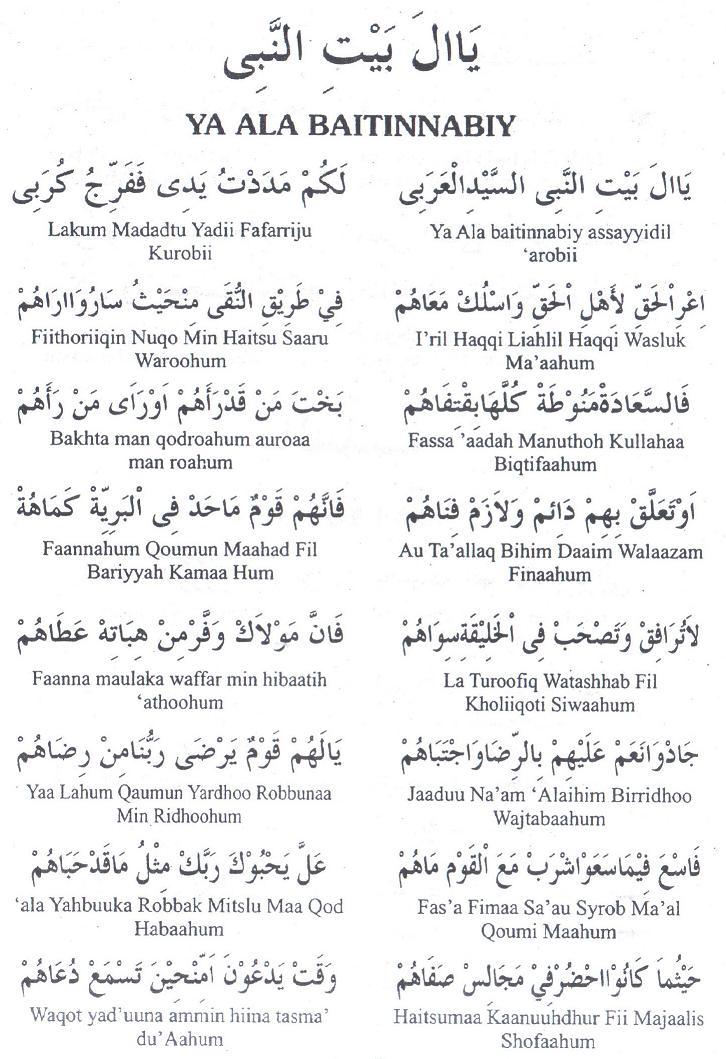 يَاالَ بَيْتِ النَّبِى
YA ALA BAITINNABIY
يَاالَ بَيْتِ النَّبِى السَّيِّدِالْعَرَبِى
لَكُمْ مَدَدْتُ يَدِى فَفَرِّجُ كُرَبِى
Ya Ala baitinnabiy assayyidil
‘arobii
Lakum Madadtu Yadii Fafarriju
Kurobii
اِعْرِالْحَقِّ لأَهْلِ الْحَقِّ وَاسْلُكْ مَعَاهُمْ
فِيْ طَرِيْقِ النُّقَى مِنْحَيْثُ سَارُوَاارَاهُمْ
I’ril Haqqi Liahlil Haqqi Wasluk
Ma’aahum
Fiithoriiqin Nuqo Min Haitsu Saaru
Waroohum
فَالسَّعَادَةْمَنُوْطَةْ كُلَّهَابِقْتِفَاهُمْ
بَخْتَ مَنْ قَدْرَأَهُمْ اَوْرَاَى مَنْ رَأَهُمْ
Fassa ’aadah Manuthoh Kullahaa
Biqtifaahum
Bakhta man qodroahum auroaa
man roahum
اَوْتَعَلَّقْ بِهِمْ دَائِمْ وَلاَزَمْ فِنَاهُمْ
فَانَّهُمْ قَوْمٌ مَاحَدْ فِى الْبَرِيَّةْ كَمَاهُمْ
Au Ta’allaq Bihim Daaim Walaazam
Finaahum
Faannahum Qoumun Maahad Fil
Bariyyah Kamaa Hum
لاَتُرَافِقْ وَتَصْحَبْ فِى الْخَلِيْقَةِسِوَاهُمْ
فَانَّ مَوْلاَكْ وَفَّرْمِنْ هِبَاتِهْ عَطَاهُمْ
La Turoofiq Watashhab Fil
Kholiiqoti Siwaahum
Faanna maulaka waffar min hibaatih
‘athoohum
جَادْوَانَعَمْ عَلَيْهِمْ بِالرِّضَاوَاجْتَبَاهُمْ
يَالَهُمْ قَوْمٌ يَرْضَى رَبُّنَامِنْ رِضَاهُمْ
Jaaduu Na’am ‘Alaihim Birridhoo
Wajtabaahum
Yaa Lahum Qaumun Yardhoo Robbunaa
Min Ridhoohum
فَاسْعَ فِيْمَاسَعَوْاشْرَبْ مَعَ الْقَوْمِ مَاهُمْ
عَلَّ يَحْبُوْكَ رَبَّكْ مِثْلُ مَاقَدْحَبَاهُمْ
Fas’a Fimaa Sa’au Syrob Ma’al
Qoumi Maahum
‘ala Yahbuuka Robbak Mitslu Maa Qod
Habaahum
حَيْثُمَا كَانُوْااحْضُرْفِيْ مَجَالِسْ صَفَاهُمْ
وَقَتْ يَدْعُوْنَ اَمِّنْحِيْنَ تَسْمَعْ دُعَاهُمْ
Haitsumaa Kaanuuhdhur Fii Majaalis
Shofaahum
Waqot yad’uuna ammin hiina tasma’
du’Aahum